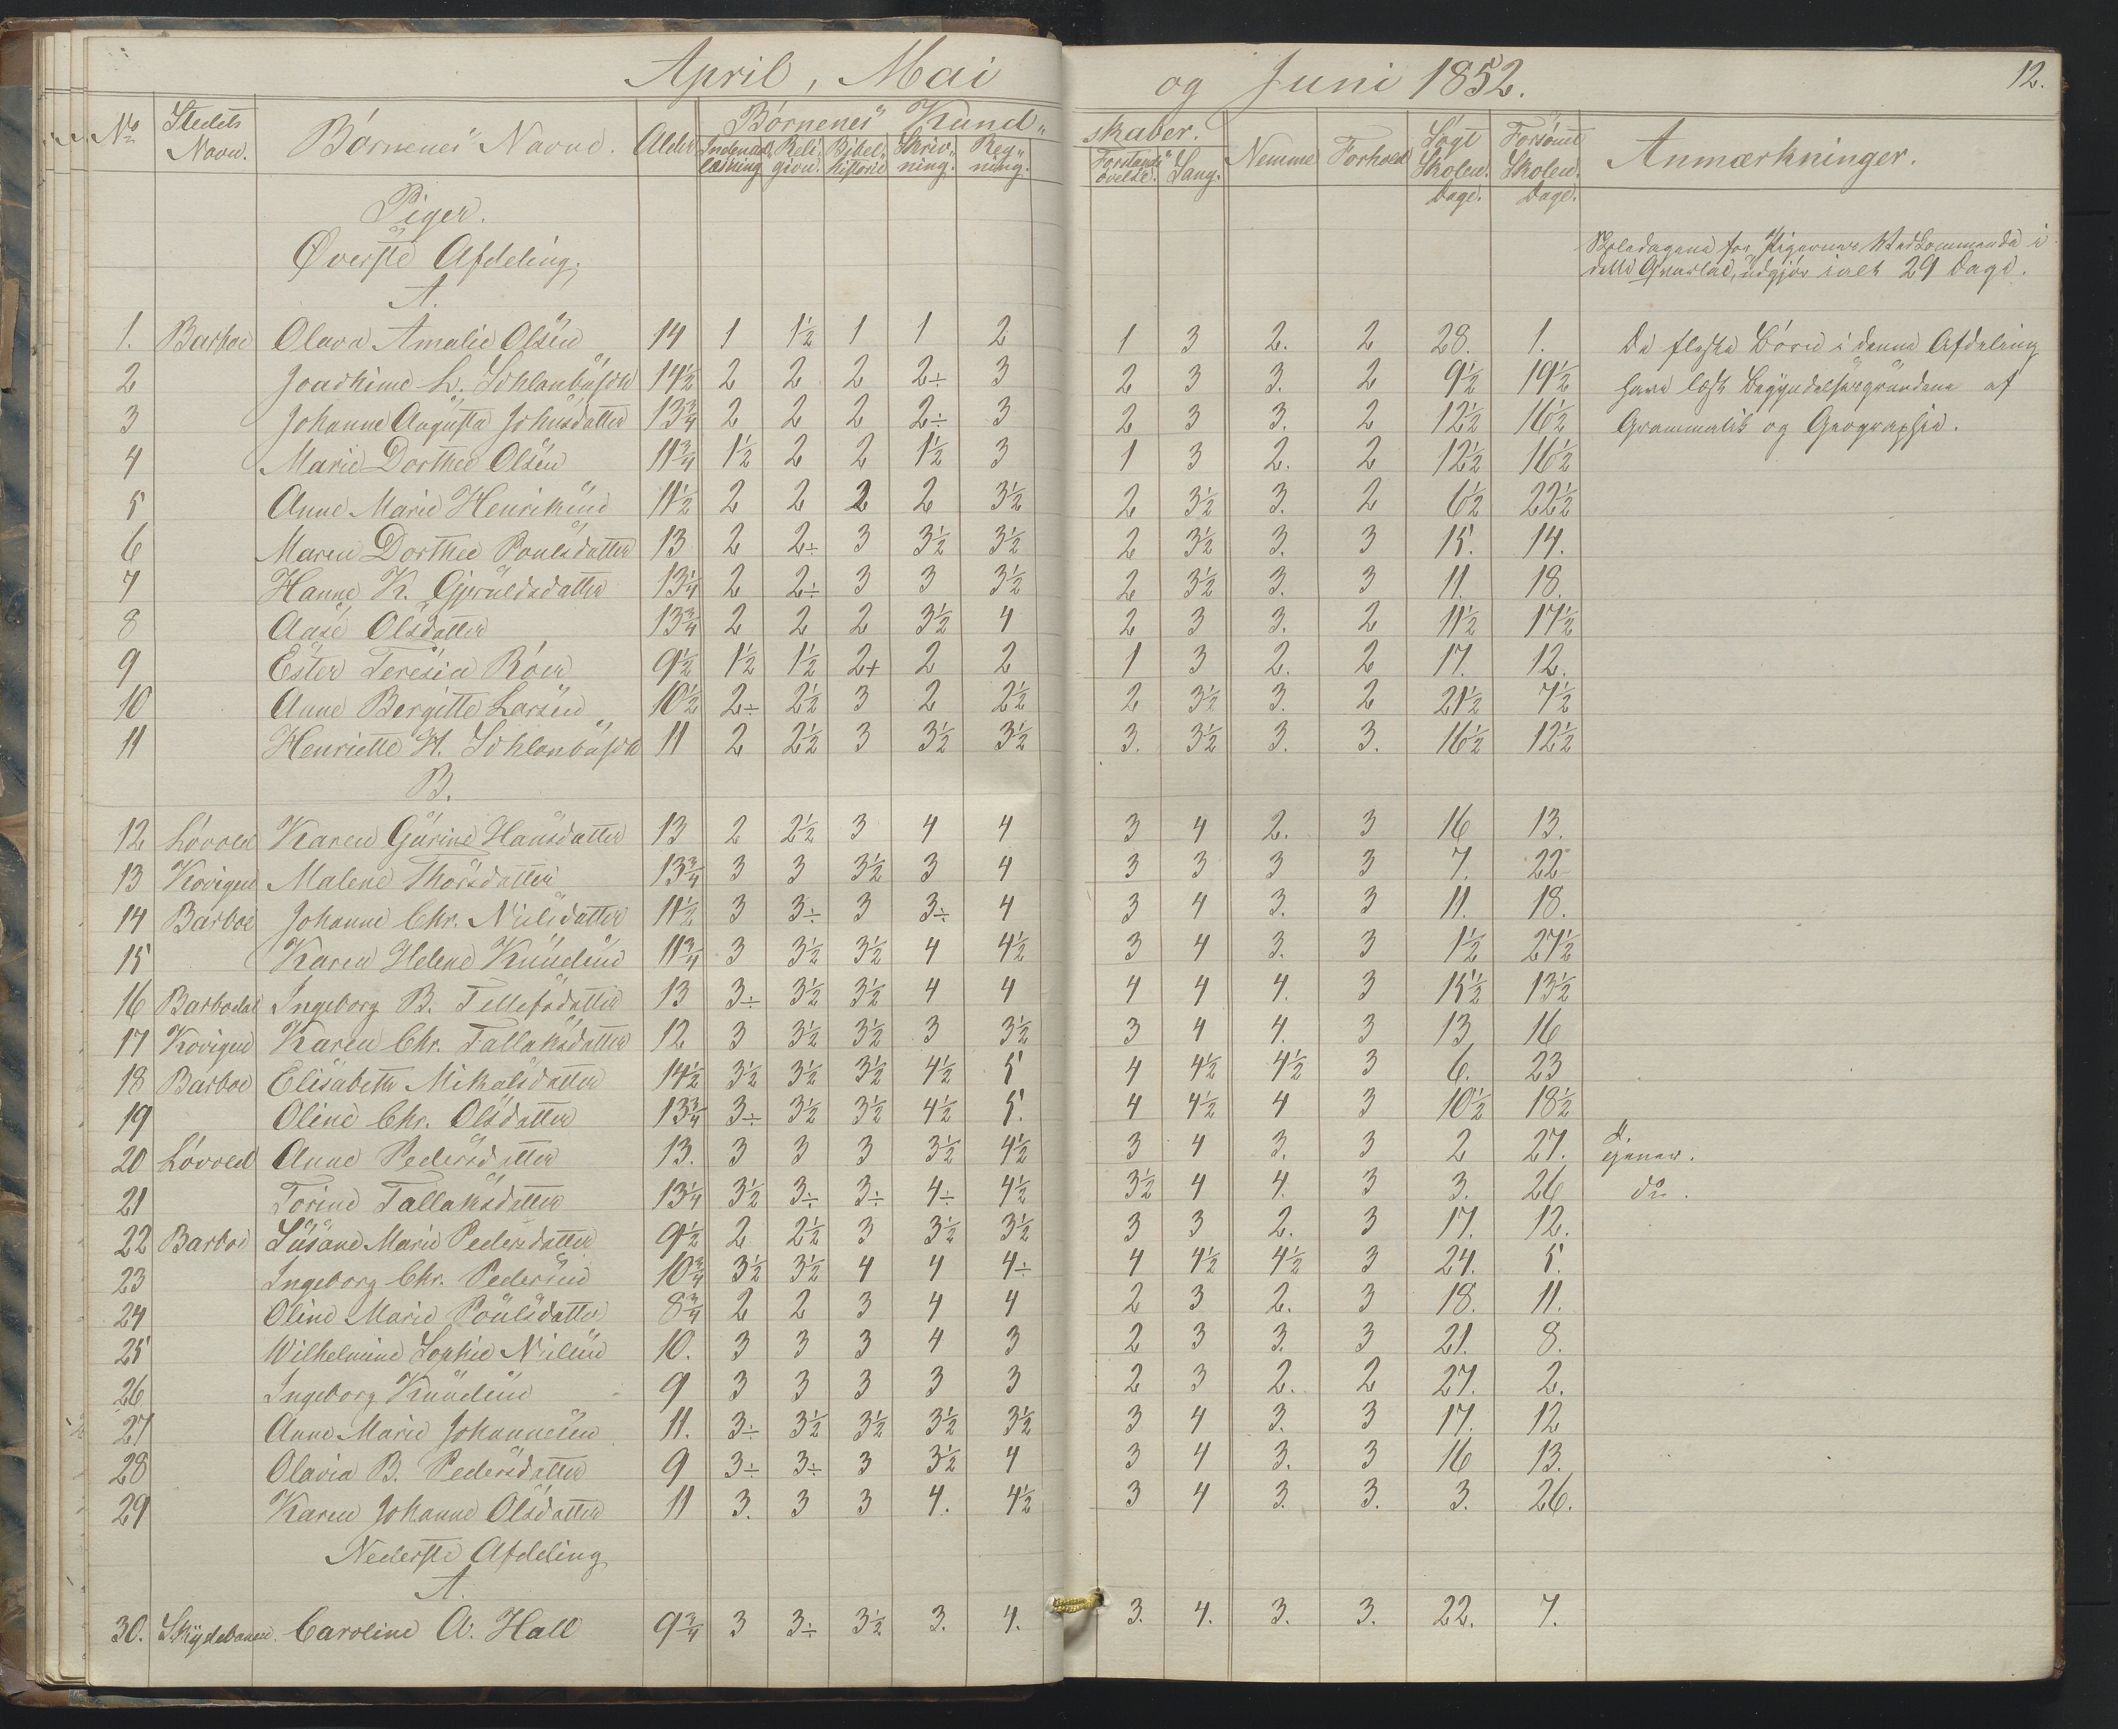 April, Mai og Juni 1852. 12.
No Stedets Navn. Børnenes Navne. Alder Børnenes Kund- skaber. Nemme Forhold Søgt Skolen. Dage. Forsømt Skolen. Dage. Anmærkninger.
Indenad læsning Reli- gion. Bibel- historie Skriv- ning. Reg- ning. Forstands øvelse. Sang.
Piger.
Øverste Afdeling.
Skoledagene for Pigernes Vedkommende i
dette Qvartal, udgjør ialt 29 Dage.
A.
1. Barboe Olava Amalie Olsen 14 1 1½ 1 1 2 1 3 2. 2 28. 1. De fleste Børn i denne Afdeling
2 Joachime L. Schlanbusch 14½ 2 2 2 2÷ 3 2 3 3. 2 9½ 19½ have læst Begyndelsesgrundene af
3 Johanne Augusta Johnsdatter 13¾ 2 2 2 2÷ 3 2 3 3. 2 12½ 16½ Grammatik og Geographie.
4 Marie Dorthee Olsen 11¾ 1½ 2 2 1½ 3 1 3 2. 2 12½ 16½
5 Anne Marie Henriksen 11½ 2 2 2 2 3½ 2 3½ 3. 2 6½ 22½
6 Maren Dorthee Poulsdatter 13 2 2÷ 3 3½ 3½ 2 3½ 3. 3 15. 14.
7 Hanne K. Gjeruldsdatter 13¼ 2 2÷ 3 3 3½ 2 3½ 3. 3 11. 18.
8 Aase Olsdatter 13¾ 2 2 2 3½ 4 2 3 3. 2 11½ 17½
9 Ester Teresia Röer 9½ 1½ 1½ 2+ 2 2 1 3 2. 2 17. 12.
10 Anne Bergitte Larsen 10½ 2÷ 2½ 3 2 2½ 2 3½ 3. 2 21½ 7½
11 Henriette H. Schlanbusch 11 2 2½ 3 3½ 3½ 3. 3½ 3. 3. 16½ 12½
B.
12 Løvold Karen Gurine Hansdatter 13 2 2½ 3 4 4 3 4 2. 3 16 13.
13 Kovigen Malene Thorsdatter 13¾ 3 3 3½ 3 4 3 3 3 3 7. 22
14 Barboe Johanne Chr. Nielsdatter 11½ 3 3÷ 3 3÷ 4 3 4 3. 3 11. 18.
15 Karen Helene Knudsen 11¾ 3 3½ 3½ 4 4½ 3 4 3. 3 1½ 27½
16 Barbodal Ingeborg B. Tellefsdatter 13 3÷ 3½ 3½ 4 4 4 4 4. 3 15½ 13½
17 Kovigen Karen Chr. Tallaksdatter 12 3 3½ 3½ 3 3½ 3 4 4. 3 13 16
18 Barboe Elisabeth Mikalsdatter 14½ 3½ 3½ 3½ 4½ 5 4 4½ 4½ 3 6. 23
19 Oline Chr. Olsdatter 13¾ 3÷ 3½ 3½ 4½ 5. 4 4½ 4 3 10½ 18½
20 Løvold Anne Pedersdatter 13. 3 3 3 3½ 4½ 3 4 3. 3 2 27. tjener.
21 Torine Tallaksdatter 13¼ 3½ 3÷ 3÷ 4÷ 4½ 3½ 4 4. 3 3. 26 do.
22 Barboe Susane Marie Pedersdatter 9½ 2 2½ 3 3½ 3½ 3 3 2. 3 17. 12.
23 Ingeborg Chr. Pedersen 10¾ 3½ 3½ 4 4 4÷ 4 4½ 4½ 3 24. 5.
24 Oline Marie Poulsdatter 8¾ 2 2 3 4 4 2 3 2. 3 18. 11.
25 Wilhelmine Sophie Nielsen 10. 3 3 3 4 3 2 3 3. 3 21. 8.
26 Ingeborg Knudsen 9 3 3 3 3 3 2 3 2. 2 27. 2.
27 Anne Marie Johannesen 11. 3÷ 3½ 3½ 3½ 3½ 3 4 3. 3 17. 12
28 Olavia B. Pedersdatter 9 3÷ 3÷ 3 3½ 4 3 4 3. 3 16 13.
29 Karen Johanne Olsdatter 11 3. 3 3 4. 4½ 3 4 3. 3. 3. 26.
Nederste Afdeling
A.
30. Skydebanen. Caroline A. Hall 9¾ 3 3÷ 3½ 3. 4. 3. 4. 3. 3. 22. 7.